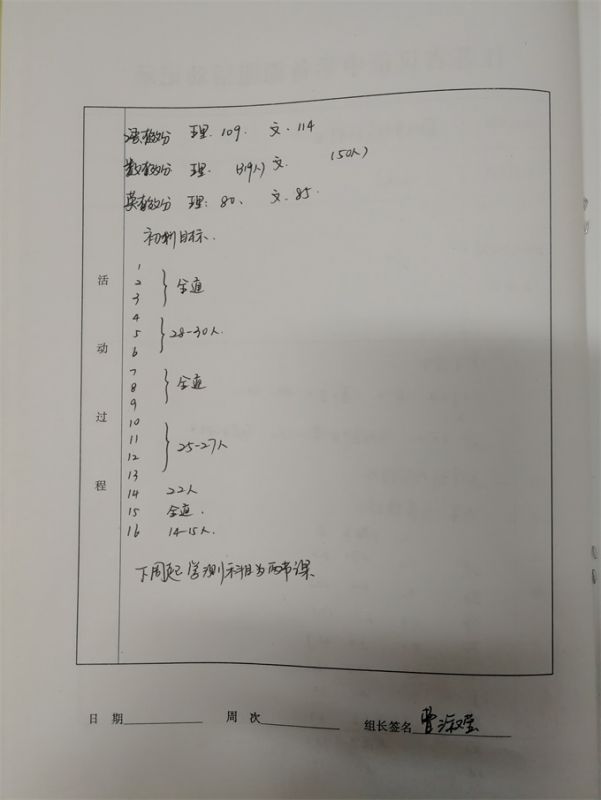 语有效分 理. 109. 文. 114
数有效分 理. (39人) 文. (50人)
英有效分 理: 80、 文. 85.
初判目标.
活动过程
1
2 } 全进
3
4
5 } 28-30人.
6
7
8 } 全进
9
10
11 } 25-27人
12
13
14 22人
15 全进.
16 14-15人.
下周起学测科目为两节课
日 期 周 次 组长签名